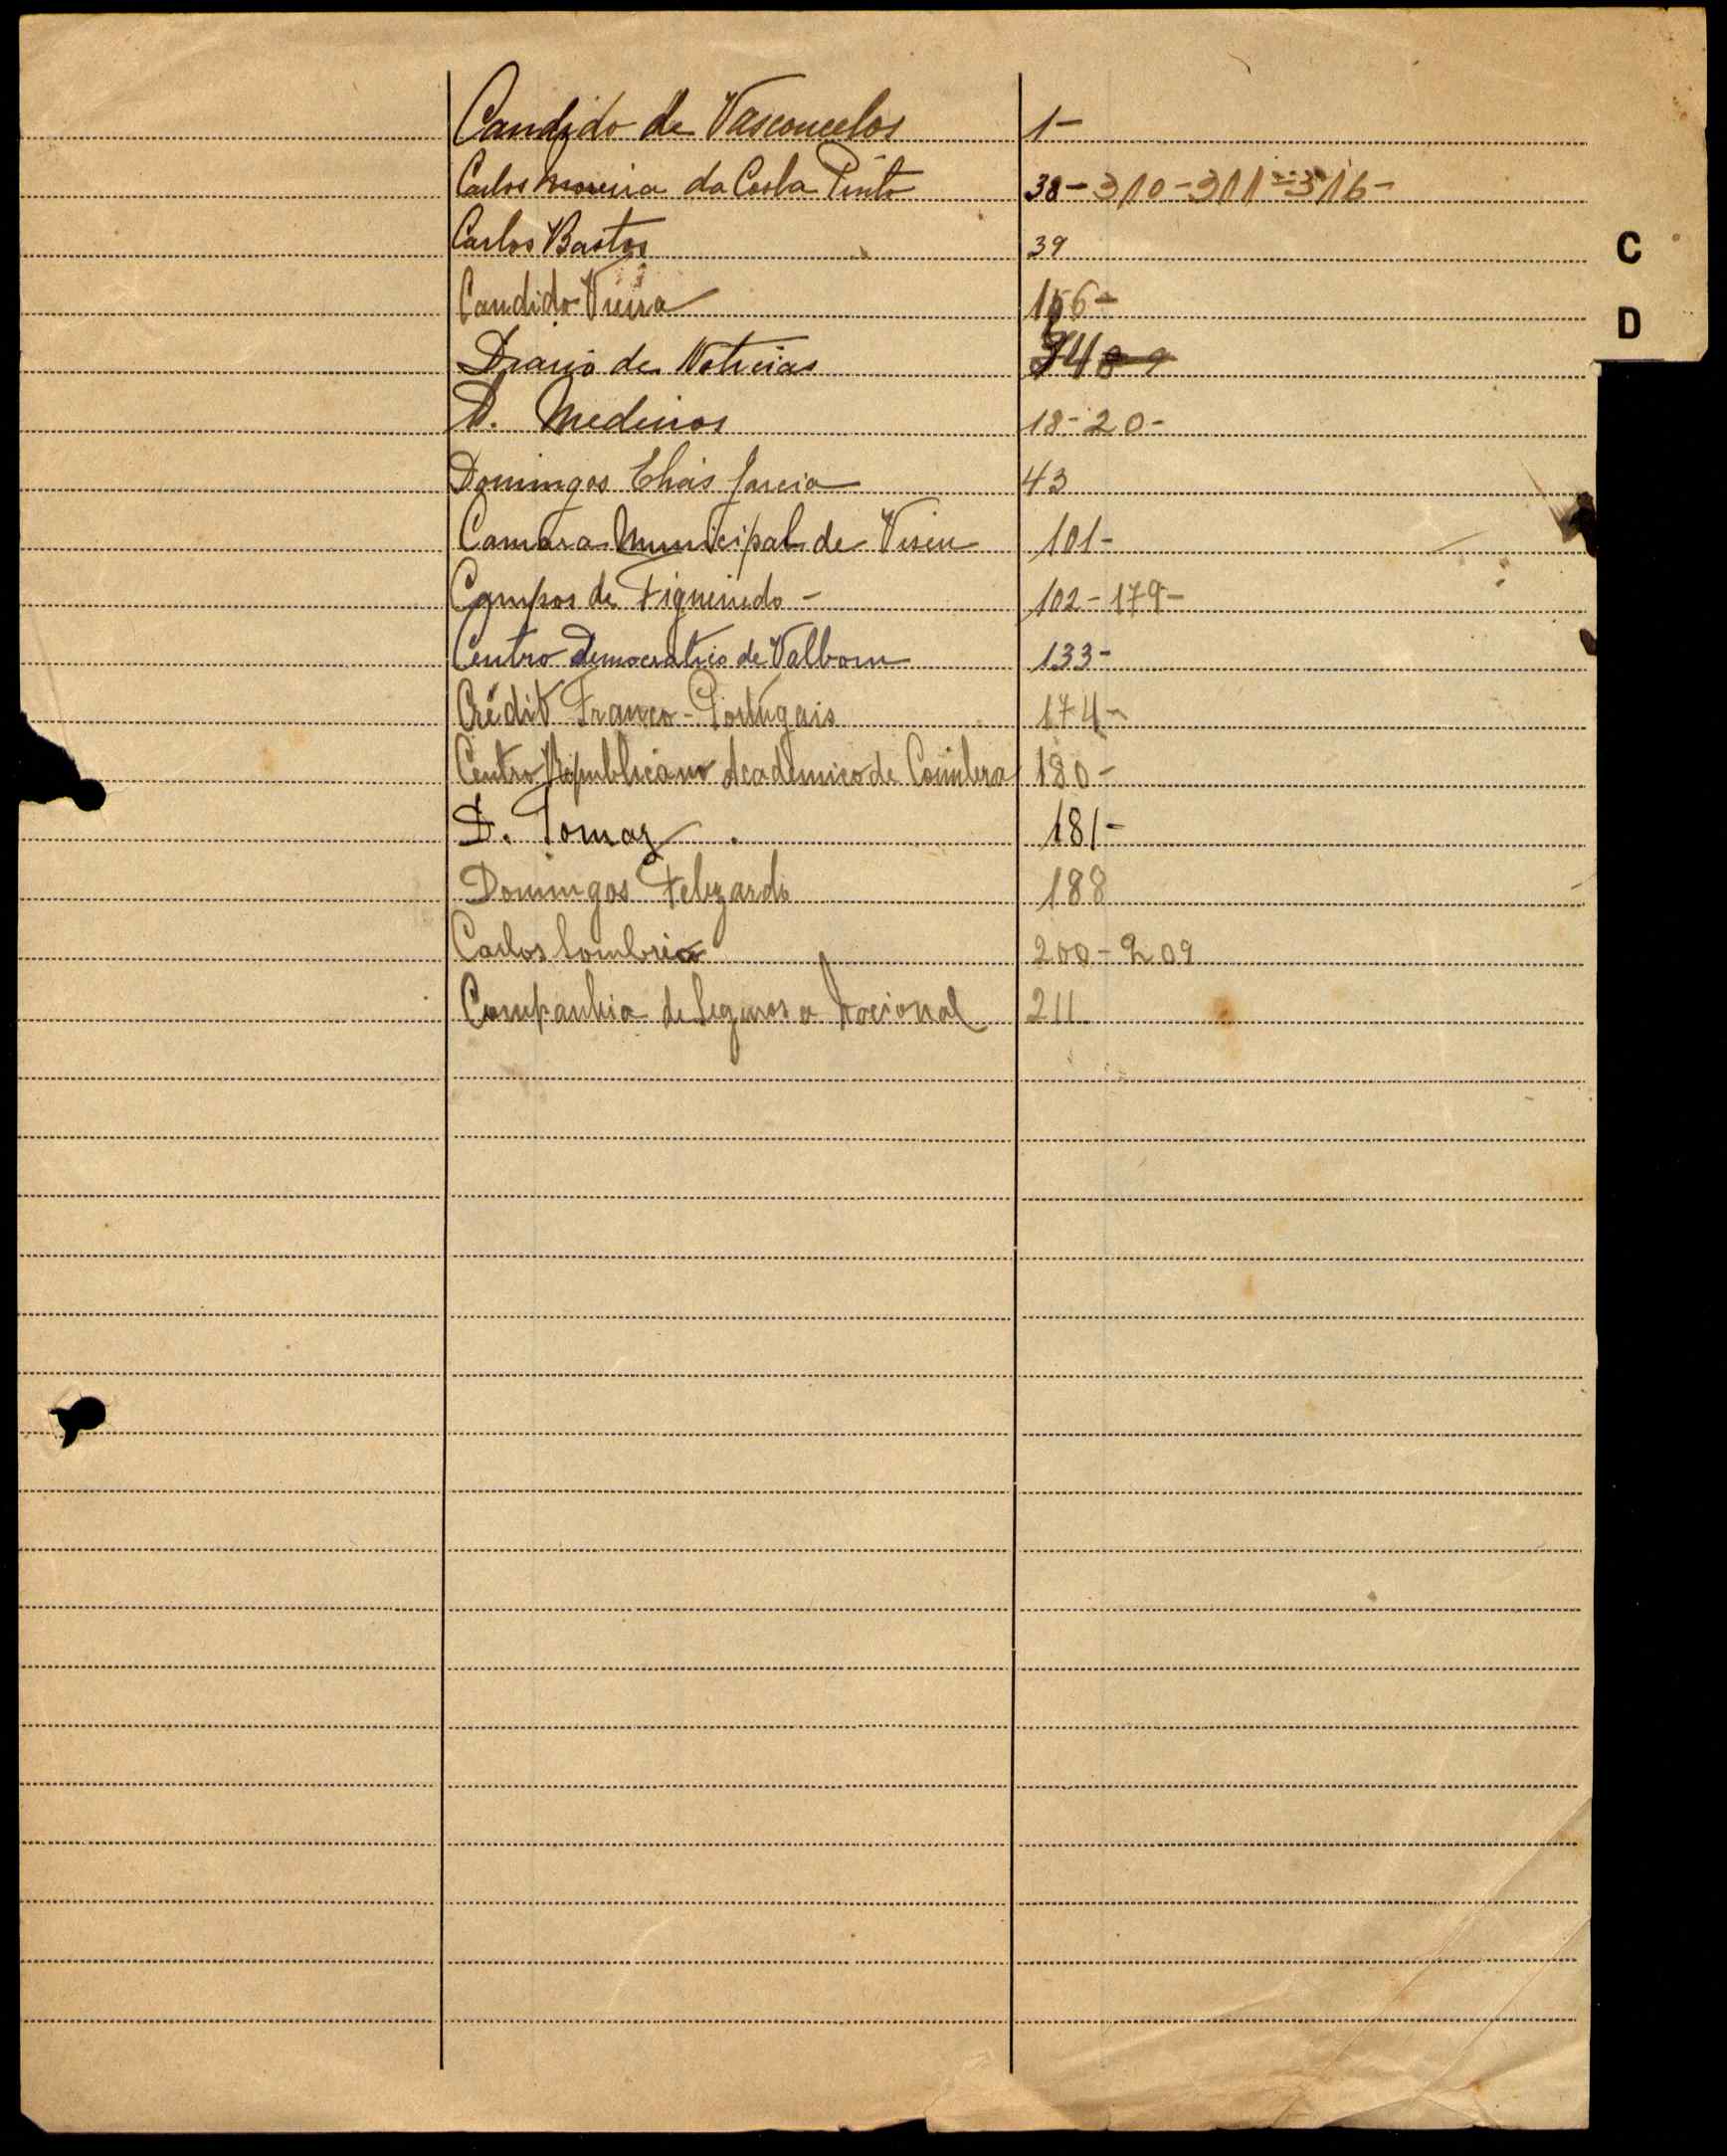 Candido de Vasconcelos 1-
Carlos Moreira da Costa Pinto 38-310-311-316-
Carlos Bastos 39
C
Candido Vieira 156-
D
Diario de Noticias
D. Medeiros 18-20-
Domingos Elias Garcia 43
Camara Municipal de Viseu 101-
Campos de Figueiredo - 102-179-
Centro Democratico de Valbom 133-
Crédit Franco-Portugais 174-
Centro Republicano Academico de Coimbra 180-
D. Tomaz 181-
Domingos Felizardo 188
Carlos 200-209
Companhia de Seguros a Nacional 211